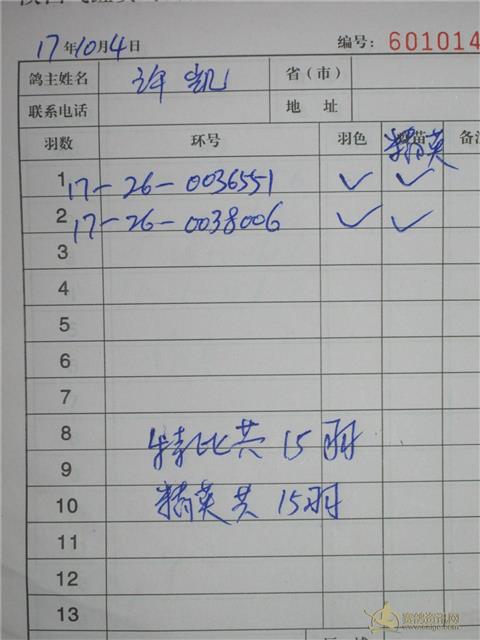 17年10月4日 编号: 601014
鸽主姓名 许凯 省(市)
联系电话 地 址
羽数 环号 羽色 精英 备
1 17-26-0036551 ✓ ✓
2 17-26-0038006 ✓ ✓
3
4
5
6
7
8
特比共15羽
9
10 精英共15羽
11
12
13